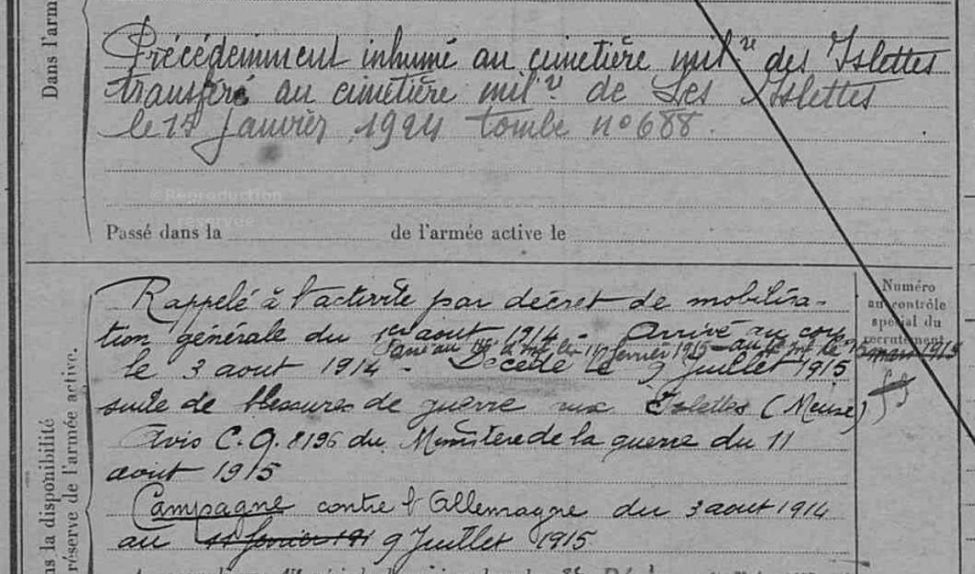 Dans l'arm
Précédemment inhumé au cimetière mil.re des Islettes
transféré au cimetière mil.re de Les Islettes
le 15 Janvier 1924 tombe n° 688.
© Reproduction
réservée
Passé dans la de l'armée active le
Rappelé à l'activité par décret de mobilisa-
tion générale du 1er aout 1914 - Arrivé au corps
Passé au d'inf. le 11 février 1915 - au d'inf. le mars 1915
le 3 aout 1914 - Décédé le 9 Juillet 1915
suite de blessures de guerre aux Islettes (Meuse)
Avis C.G. 8196 du Ministere de la guerre du 11
aout 1915
Campagne contre l'Allemagne du 3 aout 1914
au 11 février 191 9 Juillet 1915
Numéro
au contrôle
spécial du
recrutement
ns la disponibilité
réserve de l'armée active.